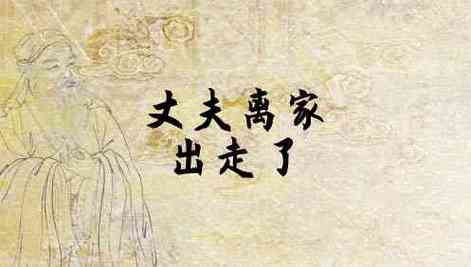 丈夫离家
出走了